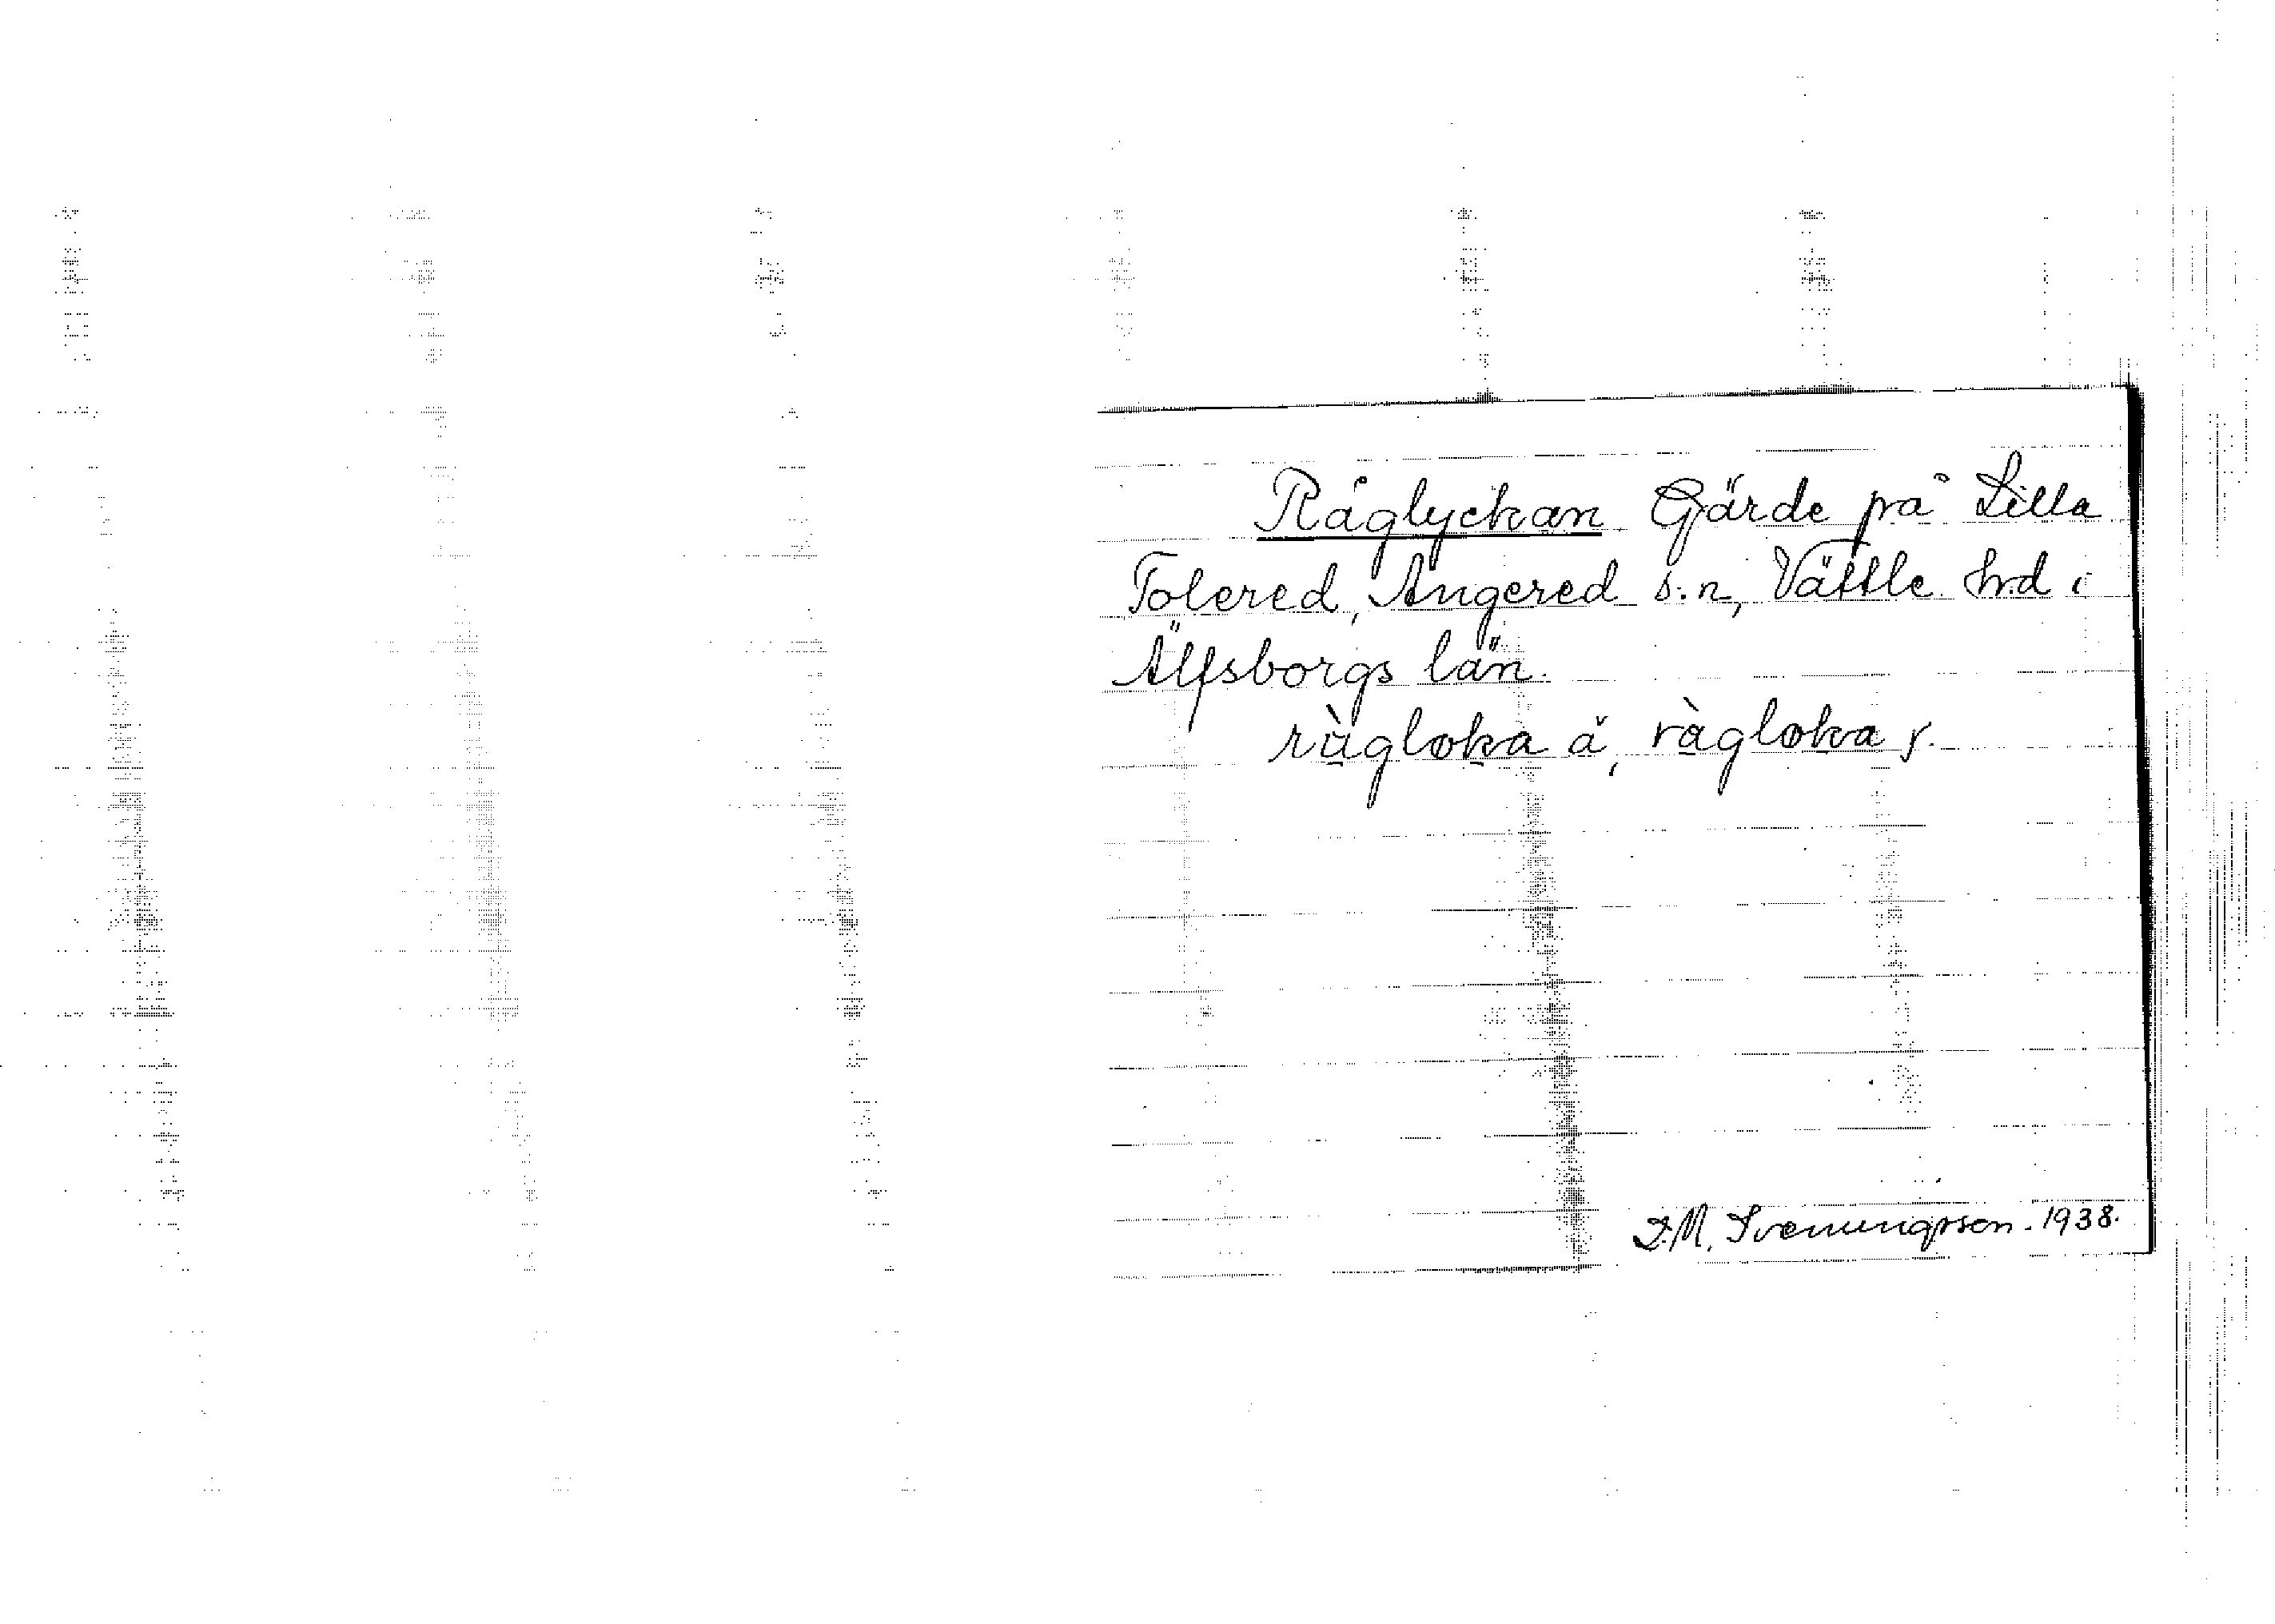 Råglyckan Gärde på Lilla
Tolered, Angered s.n, Vättle hd i
Älfsborgs län.
rùgloka ä, ràgloka y.
D.M. Svenungsson. 1938.